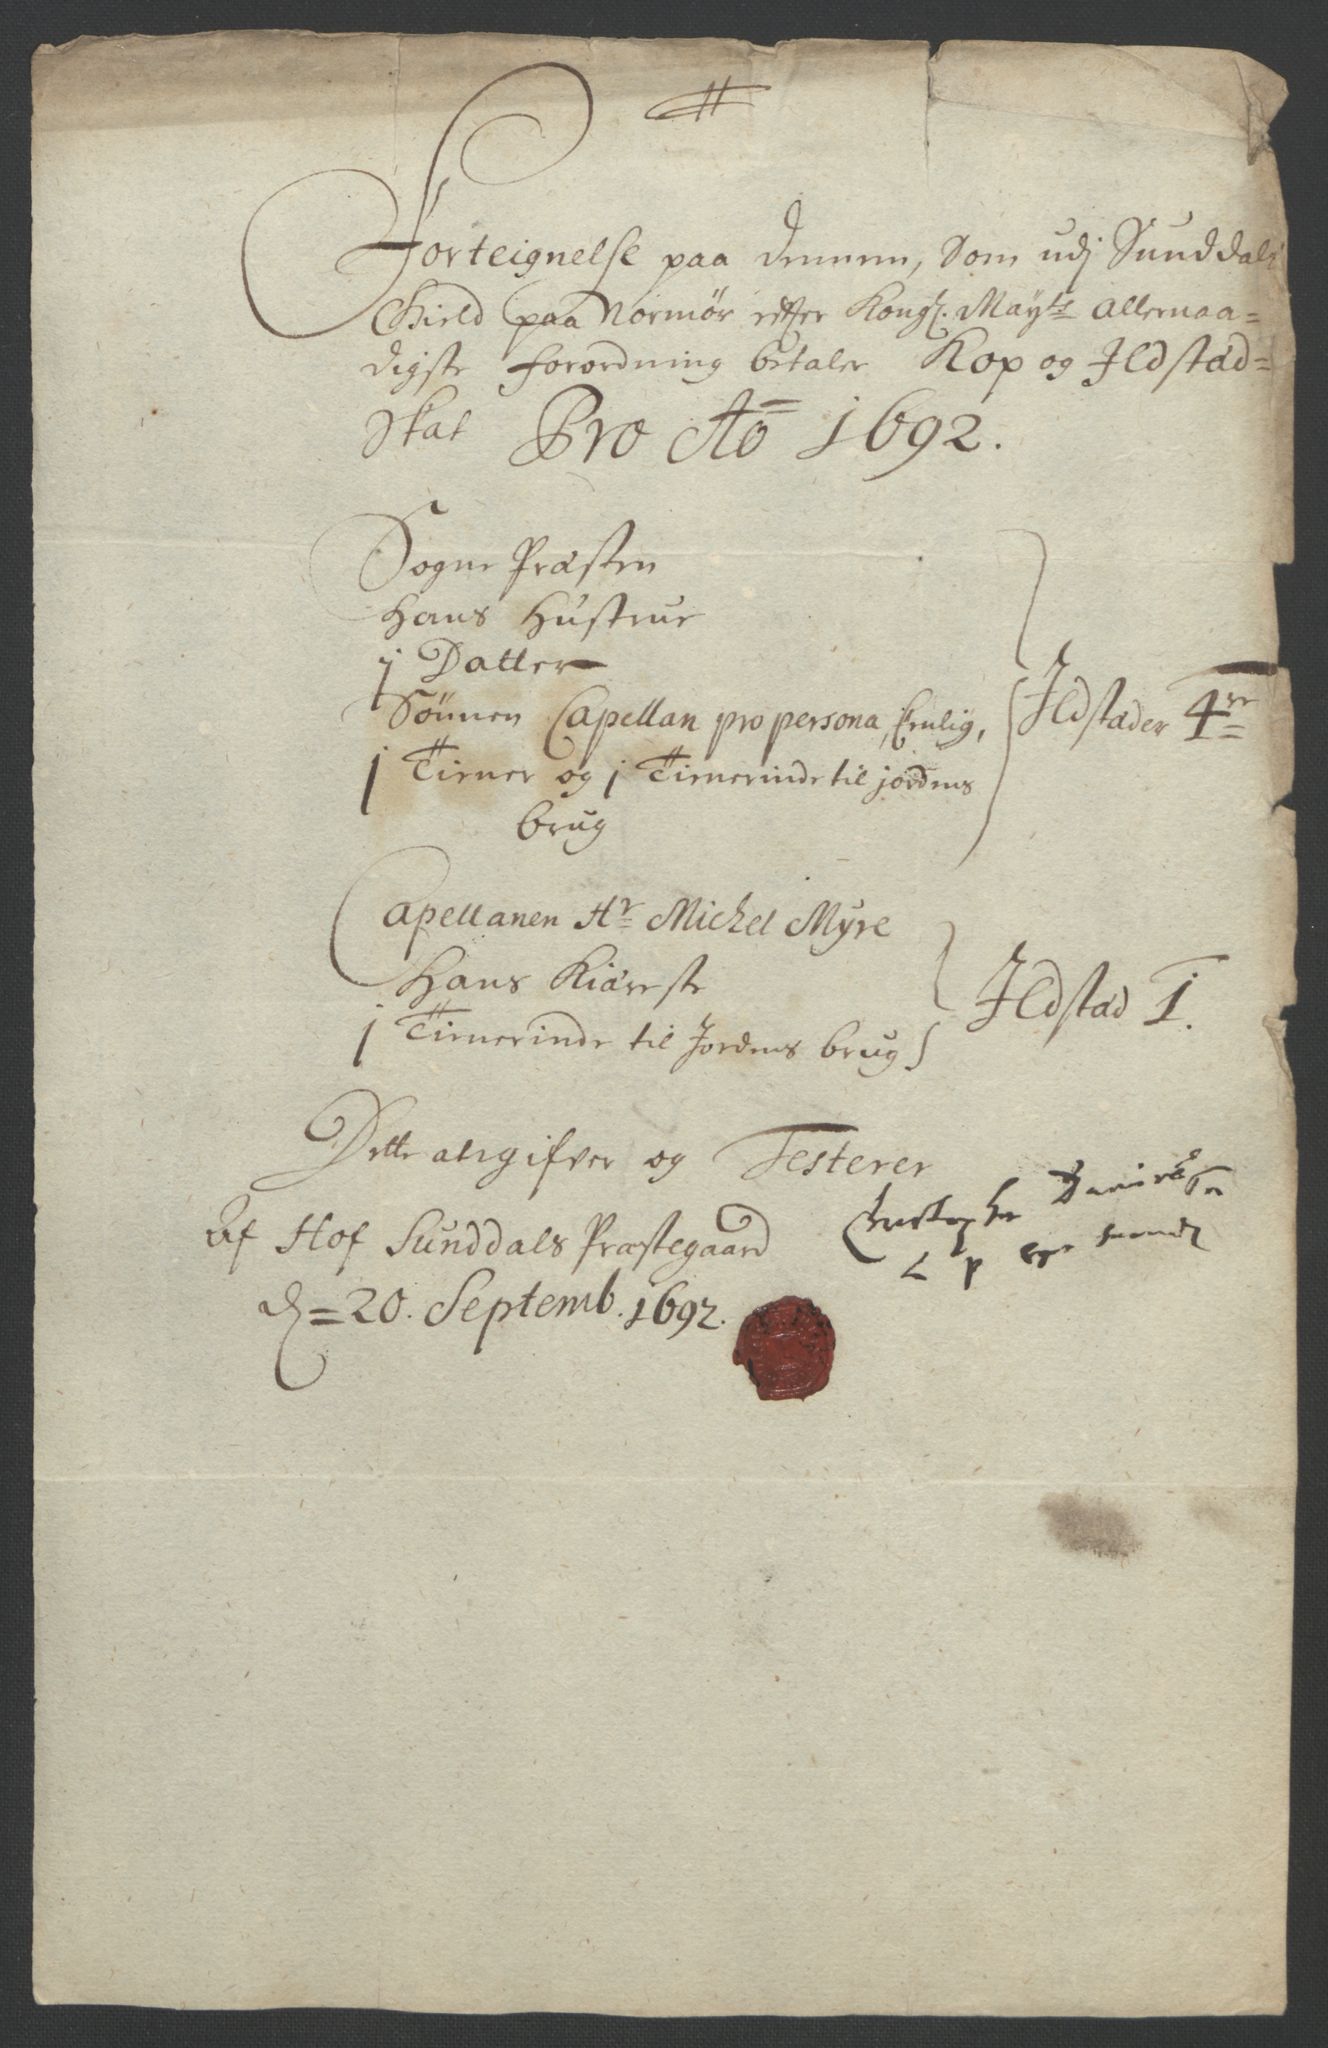 Forteignelse paa dennem, Som udj Sunddals
Gield paa Normør effter Kongl. Mayts Allernaa=
digste forordning betaler Kop og Ildstæd=
Skat Pro Ao 1692.
Sogne Præsten
Hans Hustrue
j Datter
Sönnen Capellan pro persona, Enlig,
j Tiener og j Tienerinde til jordens
brug
Ildstæder 4re
Capellanen Hr Michel Myre
Hans Kiæreste
j Tienerinde til Jordens brug
Ildstæd 1.
Dette angifver og Testerer
Af Hof Sunddals Præstegaard
d. 20. Septemb. 1692.
Christopher